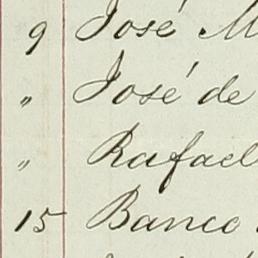 9 José M
" José de
" Rafael
15 Banco